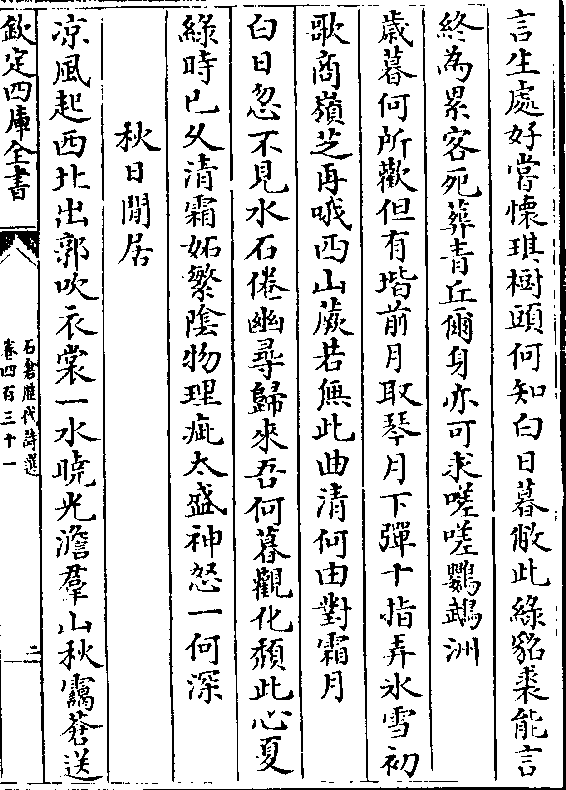 言生處好嘗懷琪樹頭何知白日暮敝此綠貂裘能言
終為累客死葬青丘爾身亦可求嗟嗟鸚鵡洲
歲暮何所歡但有堦前月取琴月下彈十指弄氷雪初
歌商嶺芝再哦西山蕨若無此曲清何由對霜月
白日忽不見水石倦幽尋歸來吾何暮觀化頽此心夏
綠時已乆清霜妬繁陰物理疵太盛神怒一何深
秋日閒居
凉風起西北出郭吹衣裳一水曉光澹羣山秋靄蒼送
欽定四庫全書
石倉歴代詩選
卷四百三十一
二